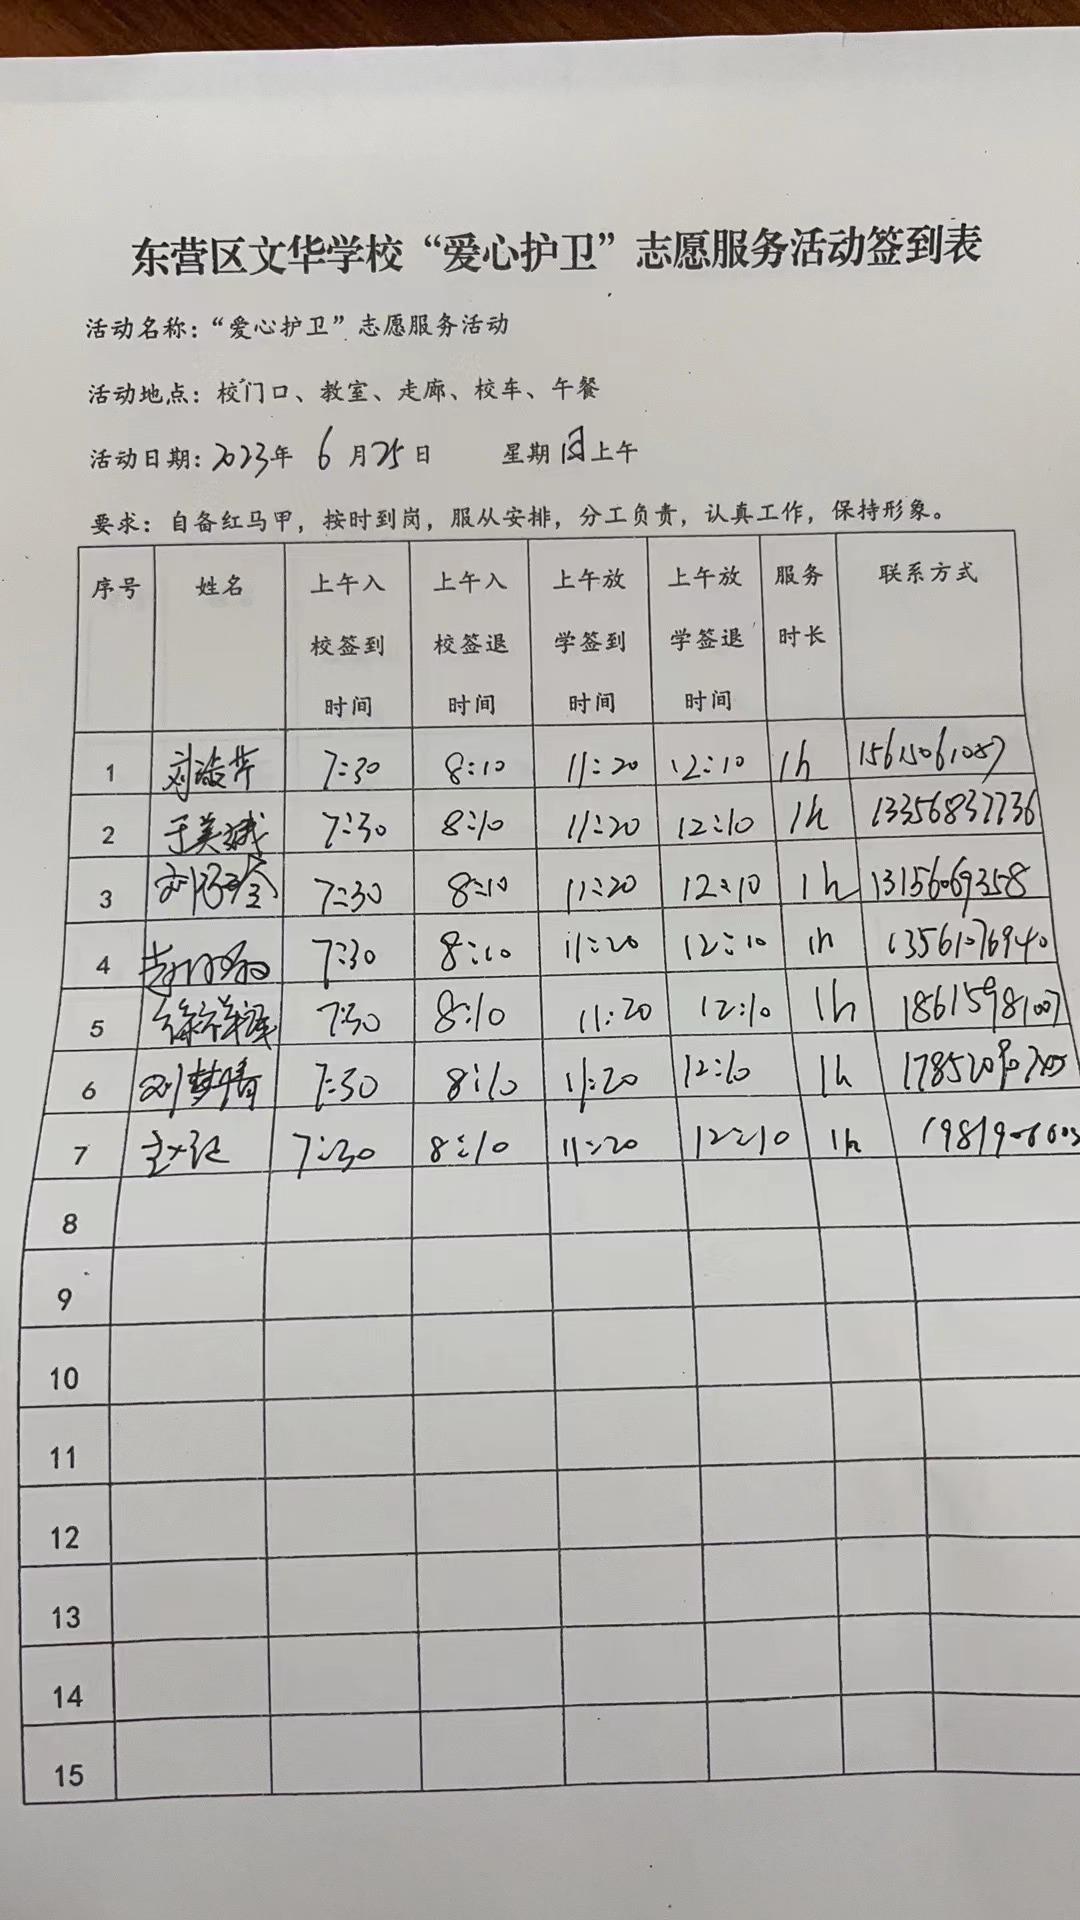 东营区文华学校“爱心护卫”志愿服务活动签到表
活动名称：“爱心护卫”志愿服务活动
活动地点：校门口、教室、走廊、校车、午餐
活动日期：2023年 6月25日 星期日上午
要求：自备红马甲，按时到岗，服从安排，分工负责，认真工作，保持形象。
序号 姓名 上午入校签到时间 上午入校签退时间 上午放学签到时间 上午放学签退时间 服务时长 联系方式
1 7:30 8:10 11:20 12:10 1h 15615061057
2 于美 7:30 8:10 11:20 12:10 1h 13356837736
3 7:30 8:10 11:20 12:10 1h 13156069358
4 7:30 8:10 11:20 12:10 1h 13561076940
5 7:30 8:10 11:20 12:10 1h 18615981007
6 刘梦情 7:30 8:10 11:20 12:10 1h
7 7:30 8:10 11:20 12:10 1h
8
9
10
11
12
13
14
15